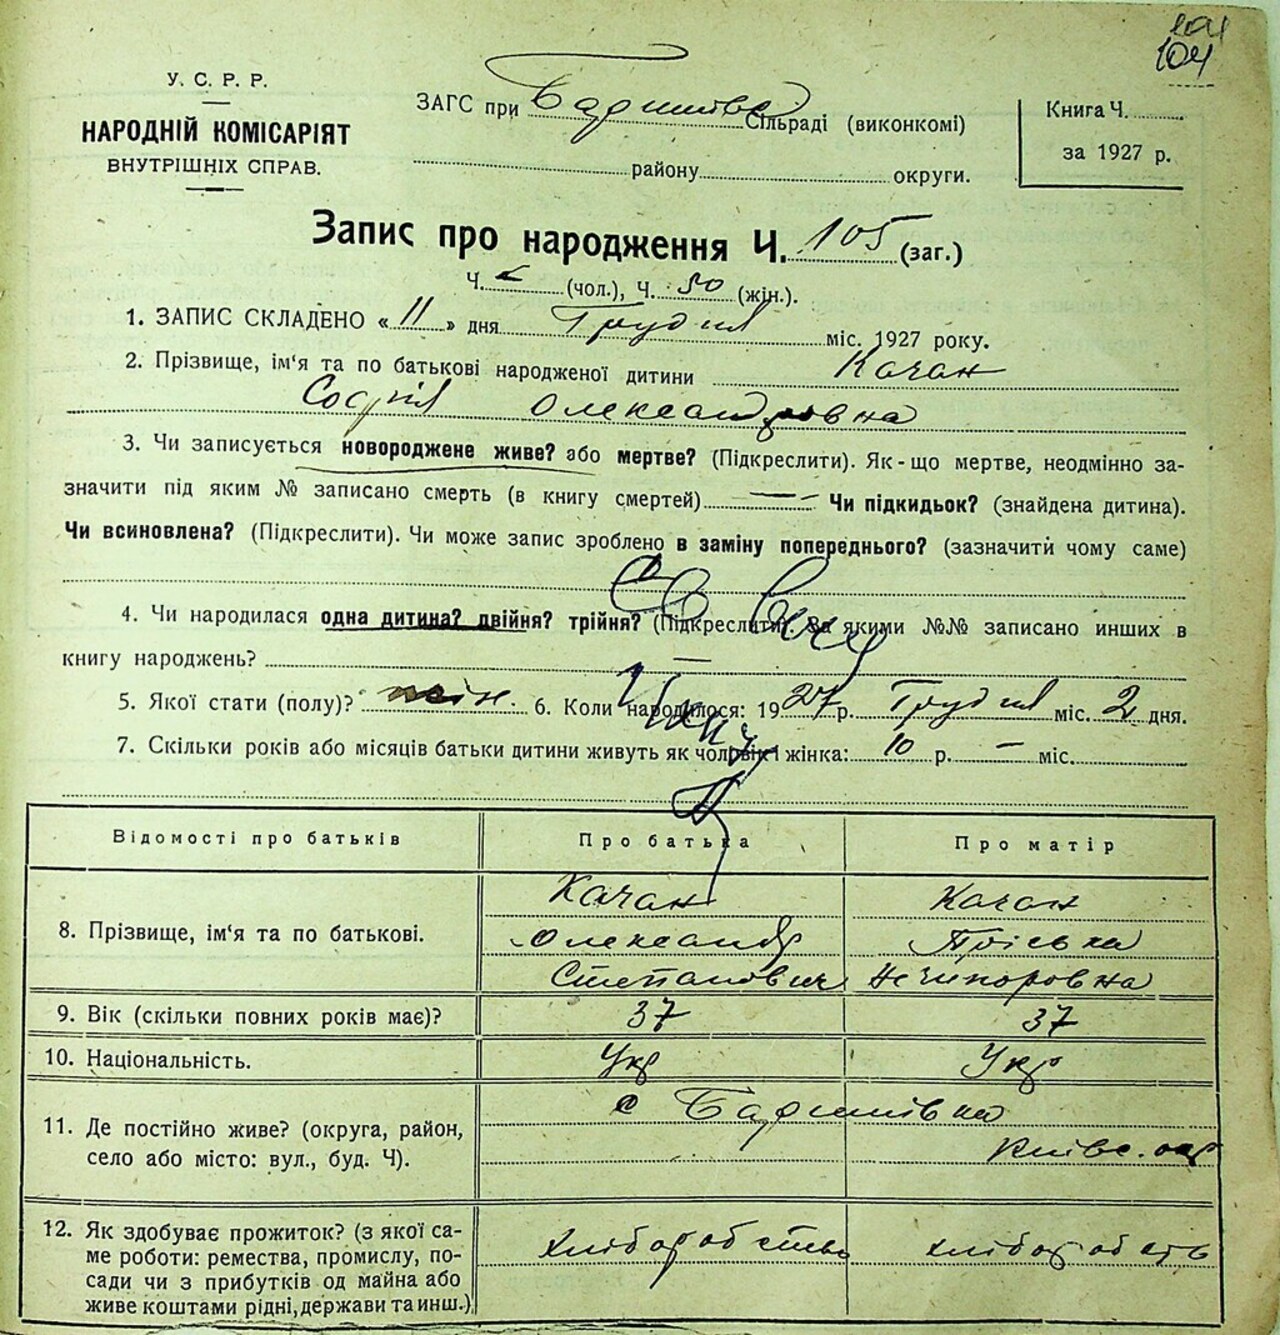 104
У. С. Р. Р.
НАРОДНІЙ КОМІСАРІЯТ
ВНУТРІШНІХ СПРАВ.
ЗАГС при Баришівс Сільраді (виконкомі)
району округи.
Книга Ч.
за 1927 р.
Запис про народження Ч. 105 (заг.)
Ч. (чол.), Ч. 50 (жін.).
1. ЗАПИС СКЛАДЕНО «11» дня Грудня міс. 1927 року.
2. Прізвище, ім'я та по батькові народженої дитини Качан
Софія Олександровна
3. Чи записується новороджене живе? або мертве? (Підкреслити). Як-що мертве, неодмінно за-
значити під яким № записано смерть (в книгу смертей) — Чи підкидьок? (знайдена дитина).
Чи всиновлена? (Підкреслити). Чи може запис зроблено в заміну попереднього? (зазначити чому саме)
4. Чи народилася одна дитина? двійня? трійня? (Підкреслити). За якими №№ записано инших в
книгу народжень? —
5. Якої стати (полу)? жін. 6. Коли народилося: 1927 р. Грудня міс. 2 дня.
7. Скільки років або місяців батьки дитини живуть як чоловік і жінка: 10 р. — міс.
Відомості про батьків Про батька Про матір
8. Прізвище, ім'я та по батькові.
Качан
Олександр
Степанович
Качан
Пріська
Нечипоровна
9. Вік (скільки повних років має)? 37 37
10. Національність. Укр Укр
11. Де постійно живе? (округа, район,
село або місто: вул., буд. Ч).
с Баришівка
Київс. окр
12. Як здобуває прожиток? (з якої са-
ме роботи: ремества, промислу, по-
сади чи з прибутків од майна або
живе коштами рідні, держави та инш.)
хліборобство хлібороб